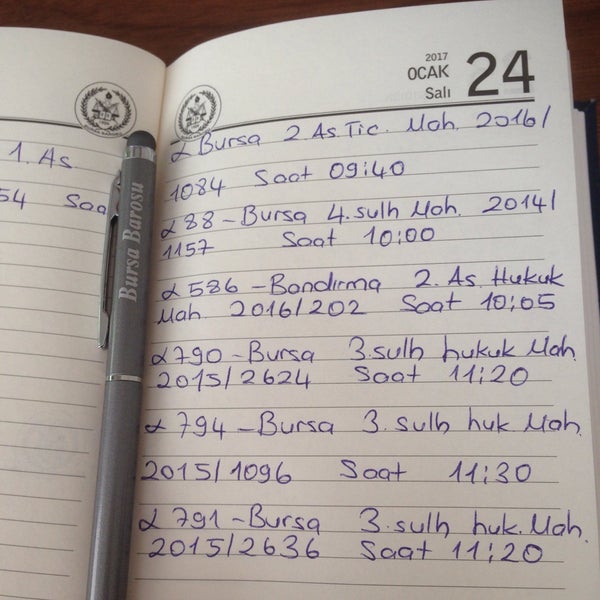 2017
OCAK 24
Salı
1. As
54 Saa
Bursa Barosu
α Bursa 2. As. Tic. Mah. 2016/
1084 Saat 09:40
α 88 - Bursa 4. sulh Mah. 2014/
1157 Saat 10:00
α 586 - Bandırma 2. As Hukuk
Mah 2016/202 Saat 10:05
α 790 - Bursa 3. sulh hukuk Mah.
2015/2624 Saat 11:20
α 794 - Bursa 3. sulh huk Mah.
2015/1096 Saat 11:30
α 791 - Bursa 3. sulh huk. Mah.
2015/2636 Saat 11:20